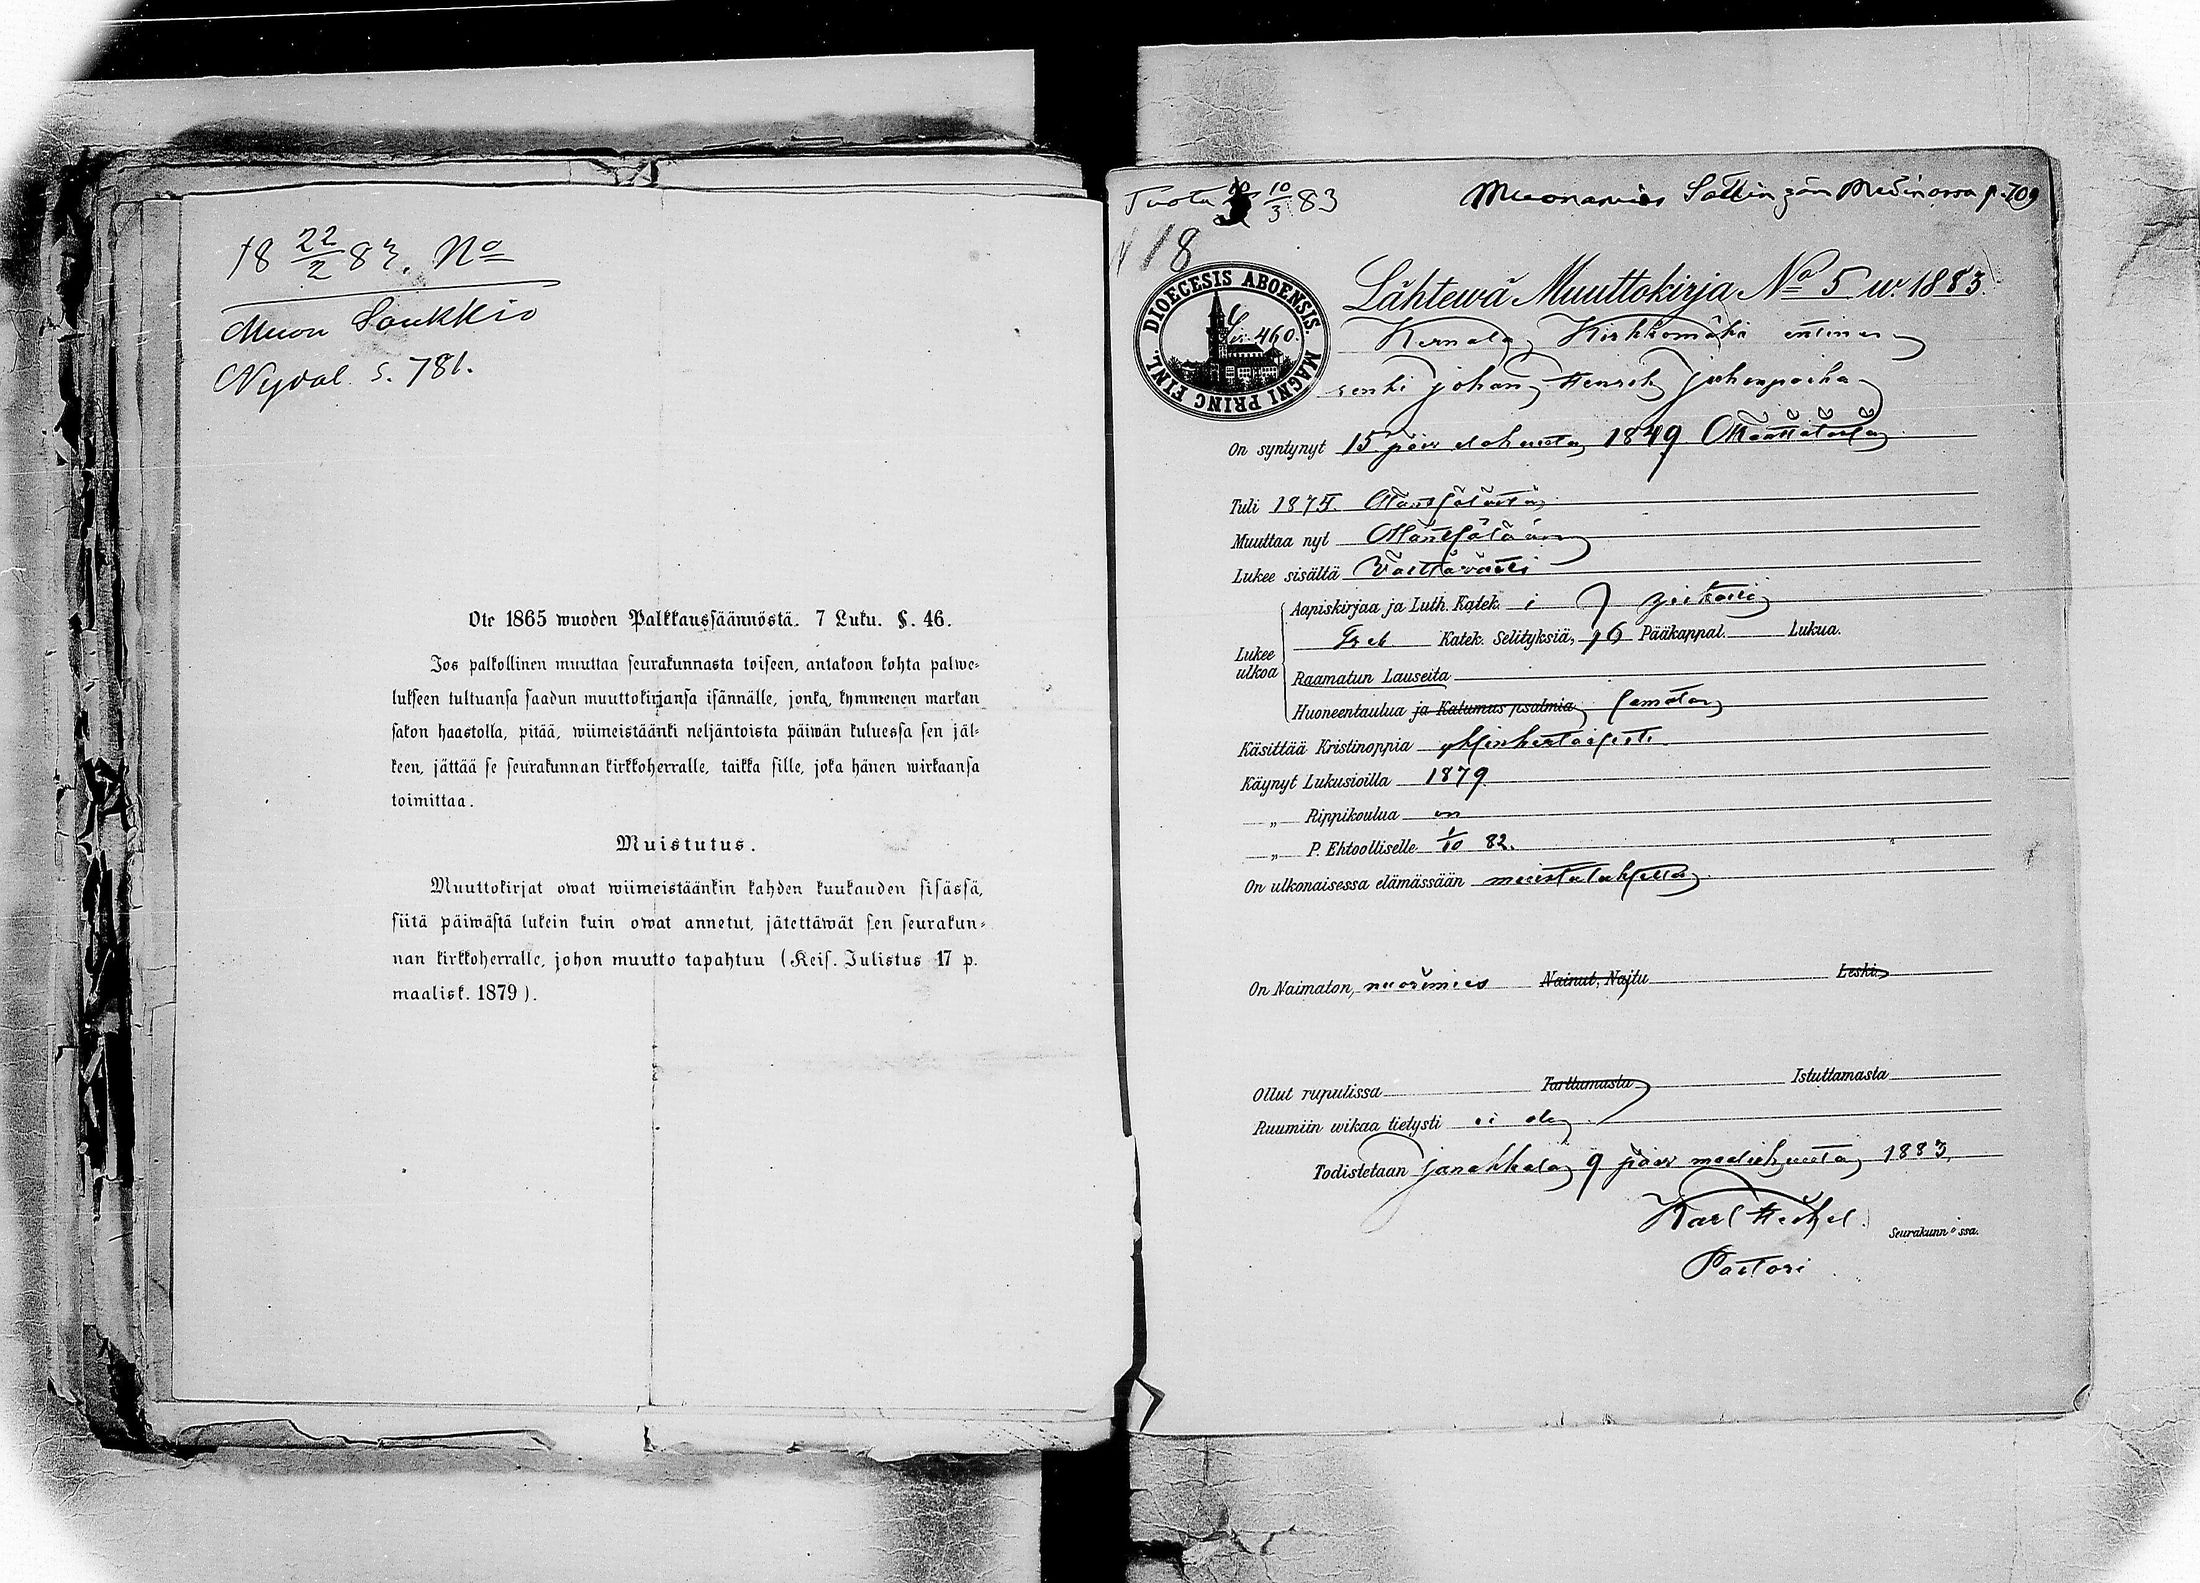 18 22/2 83. No
Muon Soukkio
Nyval s. 781.
Ote 1865 wuoden Palkkaussäännöstä. 7 Luku. §. 46.
Jos palkollinen muuttaa seurakunnasta toiseen, antakoon kohta palwe-
lukseen tultuansa saadun muuttokirjansa isännälle, jonka, kymmenen markan
sakon haastolla, pitää, wiimeistäänki neljäntoista päiwän kuluessa sen jäl-
keen, jättää se seurakunnan kirkkoherralle, taikka sille, joka hänen wirkaansa
toimittaa.
Muistutus.
Muuttokirjat owat wiimeistäänkin kahden kuukauden sisässä,
siitä päiwästä lukein kuin owat annetut, jätettäwät sen seurakun-
nan kirkkoherralle, johon muutto tapahtuu (Keis. Julistus 17 p.
maalisk. 1879).
Tuotu 10/3 83
Muonamies p. 709
18
DIOECESIS ABOENSIS. MAGNI PRINC FINL.
Cir. 460.
Lähtewä Muuttokirja No 5 w. 1883.
Kernala Kirkkomäki entinen
renki Johan Henrik Juhonpoika
On syntynyt 15 päiv elokuuta 1849 Mäntsälässä
Tuli 1875. Mäntsälästä
Muuttaa nyt Mäntsälään
Lukee sisältä Välttävästi
Aapiskirjaa ja Luth. Katek. i
Lukee ulkoa
Katek. Selityksiä, 16 Pääkappal. Lukua.
Raamatun Lauseita
Huoneentaulua ja Katumus psalmia samaten
Käsittää Kristinoppia yksinkertaisesti
Käynyt Lukusioilla 1879
„ Rippikoulua on
„ P. Ehtoolliselle 1/10 82.
On ulkonaisessa elämässään muistutuksetta
On Naimaton, nuorimies Nainut, Najtu Leski
Ollut rupulissa Tarttumasta Istuttamasta
Ruumiin wikaa tietysti ei ole
Todistetaan Janakkala 9 päiv maaliskuuta 1883,
Karl Heikel.
Seurakunn°ssa.
Pastori